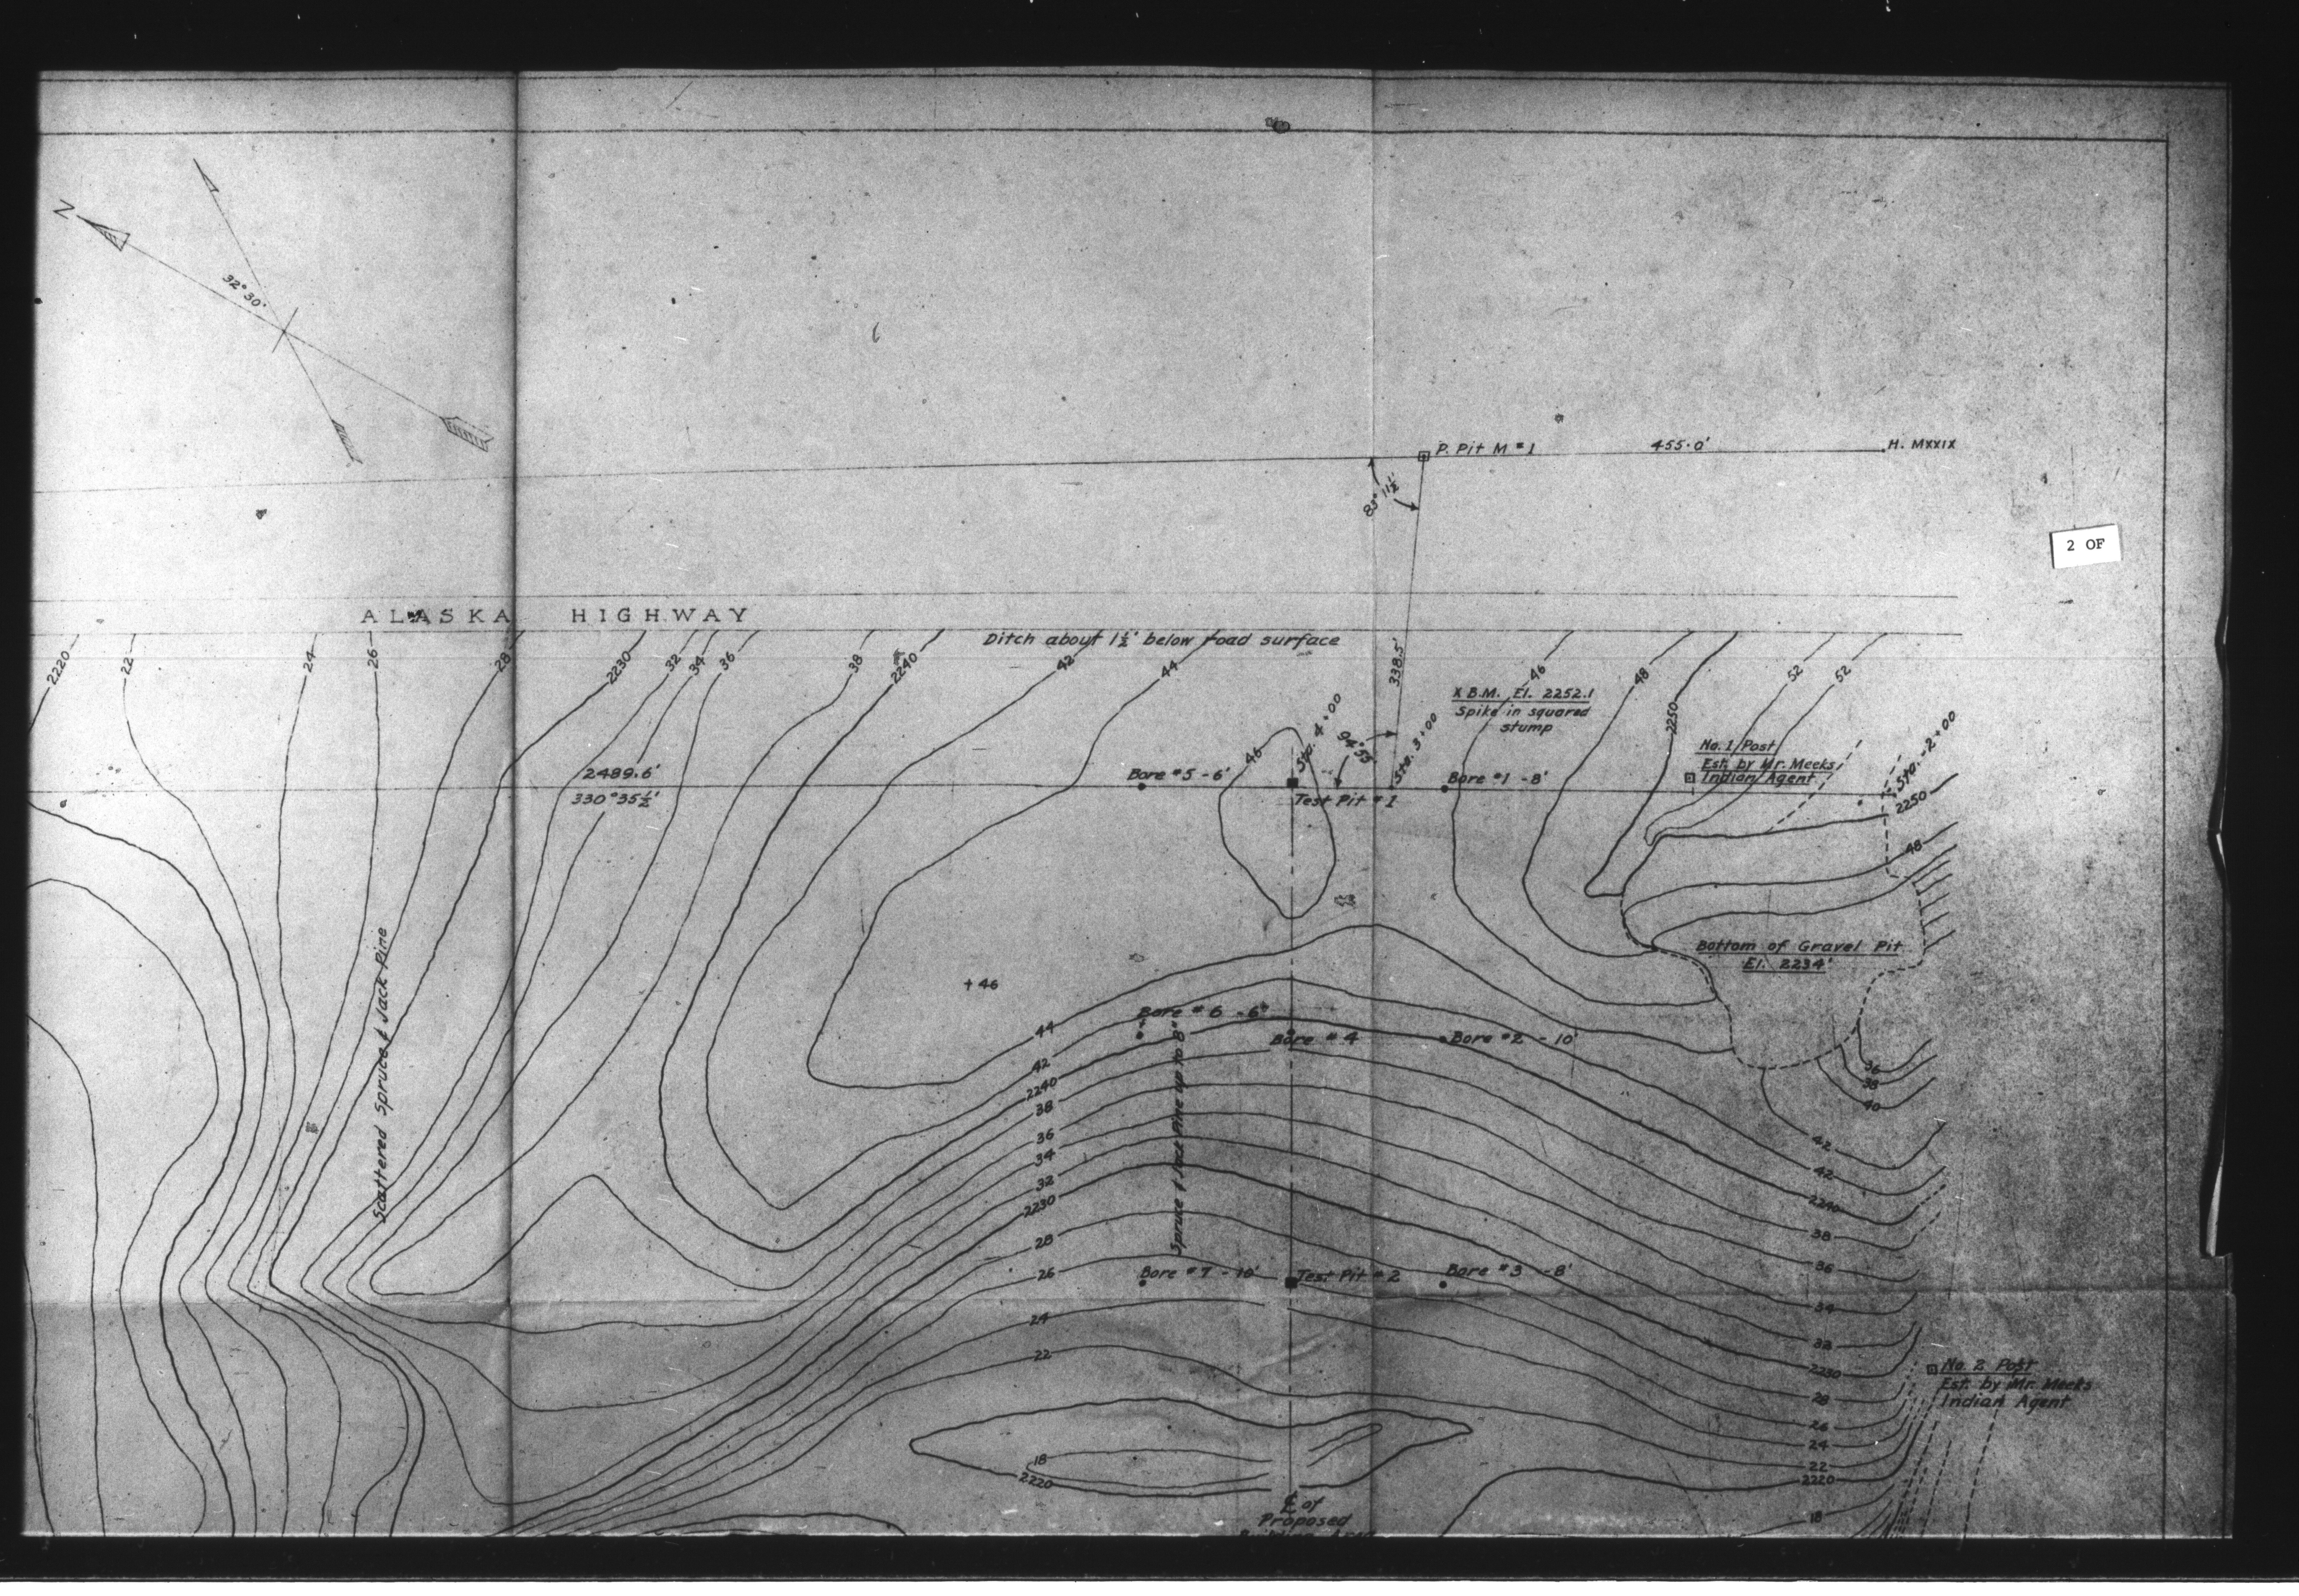 N
32° 30'
P. Pit M #1
455.0'
H. MXXIX
83° 11½'
2 OF
ALASKA HIGHWAY
Ditch about 1½' below road surface
2220
22
24
26
28
2230
32
34
36
38
2240
42
44
46
48
2250
52
52
338.5'
X B.M. El. 2252.1
Spike in squared
stump
Sta. 4+00
94° 55'
Sta. 3+00
No. 1 Post
Est. by Mr. Meeks
Indian Agent
Sta. -2+00
2489.6'
330° 35½'
Bore #5 - 6'
46
Test Pit #1
Bore #1 - 8'
2250
48
Bottom of Gravel Pit
El. 2234'
+ 46
Scattered Spruce & Jack Pine
Bore #6 - 6'
Bore #4
Bore #2 - 10'
Spruce & Jack Pine up to 8"
44
42
2240
38
36
34
32
2230
28
26
24
22
18
2220
36
38
40
42
42
2240
38
36
34
32
2230
28
26
24
22
2220
18
Bore #7 - 10'
Test Pit #2
Bore #3 - 8'
No. 2 Post
Est. by Mr. Meeks
Indian Agent
℄ of
Proposed
Building Area